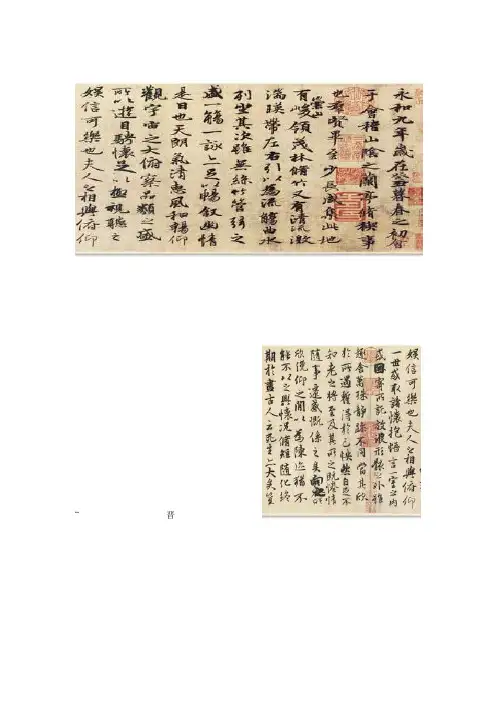 永和九年歲在癸丑暮春之初會
于會稽山陰之蘭亭脩稧事
也羣賢畢至少長咸集此地
有崇山峻領茂林脩竹又有清流激
湍暎帶左右引以為流觴曲水
列坐其次雖無絲竹管弦之
盛一觴一詠亦足以暢敘幽情
是日也天朗氣清惠風和暢仰
觀宇宙之大俯察品類之盛
所以遊目騁懷足以極視聽之
娛信可樂也夫人之相與俯仰
娛信可樂也夫人之相與俯仰
一世或取諸懷抱悟言一室之內
或因寄所託放浪形骸之外雖
趣舍萬殊靜躁不同當其欣
於所遇蹔得於己怏然自足不
知老之將至及其所之既惓情
隨事遷感慨係之矣向之所
欣俛仰之閒以為陳迹猶不
能不以之興懷況脩短隨化終
期於盡古人云死生亦大矣豈
~ 晋